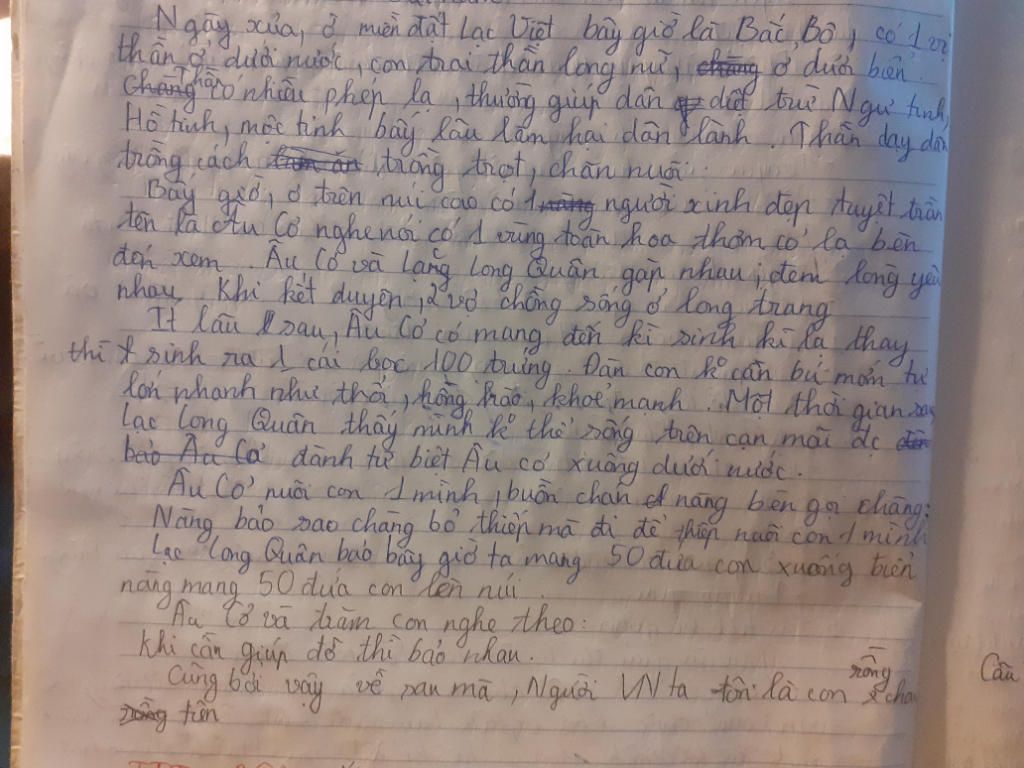 Ngày xửa, ở miền đất lạc Việt bây giờ là Bắc Bộ, có 1 vị
thần ở dưới nước, con trai thần long nữ, chàng ở dưới biển.
Chàng Thần có nhiều phép lạ, thường giúp dân diệt trừ Ngư tinh,
Hồ tinh, mộc tinh bấy lâu làm hại dân lành. Thần dạy dân
trồng cách làm ăn trồng trọt, chăn nuôi.
Bấy giờ, ở trên núi cao có 1 nàng người xinh đẹp tuyệt trần
tên là Âu Cơ nghe nói có 1 vùng toàn hoa thơm cỏ lạ bèn
đến xem. Âu Cơ và Lạng long Quân gặp nhau, đem lòng yêu
nhau. Khi kết duyên, 2 vợ chồng sống ở long trang
Ít lâu sau, Âu Cơ có mang đến kì sinh kì lạ thay
thì sinh ra 1 cái bọc 100 trứng. Đàn con k° cần bú mớm tự
lớn nhanh như thổi, hồng hào, khoẻ mạnh. Một thời gian sau
Lạc long Quân thấy mình k° thể sống trên cạn mãi đc
bảo Âu Cơ đành từ biệt Âu cơ xuống dưới nước.
Âu Cơ nuôi con 1 mình, buồn chán nàng bèn gọi chàng:
Nàng bảo sao chàng bỏ thiếp mà đi để thiếp nuôi con 1 mình
Lạc long Quân bảo bây giờ ta mang 50 đứa con xuống biển
nàng mang 50 đứa con lên núi.
Âu Cơ và trăm con nghe theo:
Khi cần giúp đỡ thì bảo nhau.
Cũng bởi vậy về sau mà, Người VN ta tôn là con rồng cháu
rồng tiên
Câu